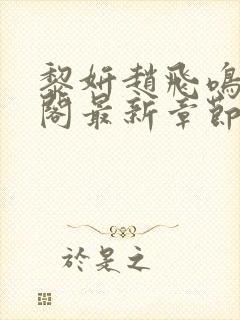 黎妍趙飛鳴
閣最新章節
於是之